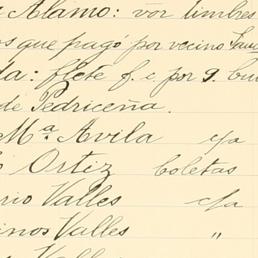 Alamo: por timbres
que pagó por vecino
: flete f. c. por g.
de Pedriceña.
Mª Avila c/a
Ortiz boletas
rio Valles c/a
inos Valles "
Valles